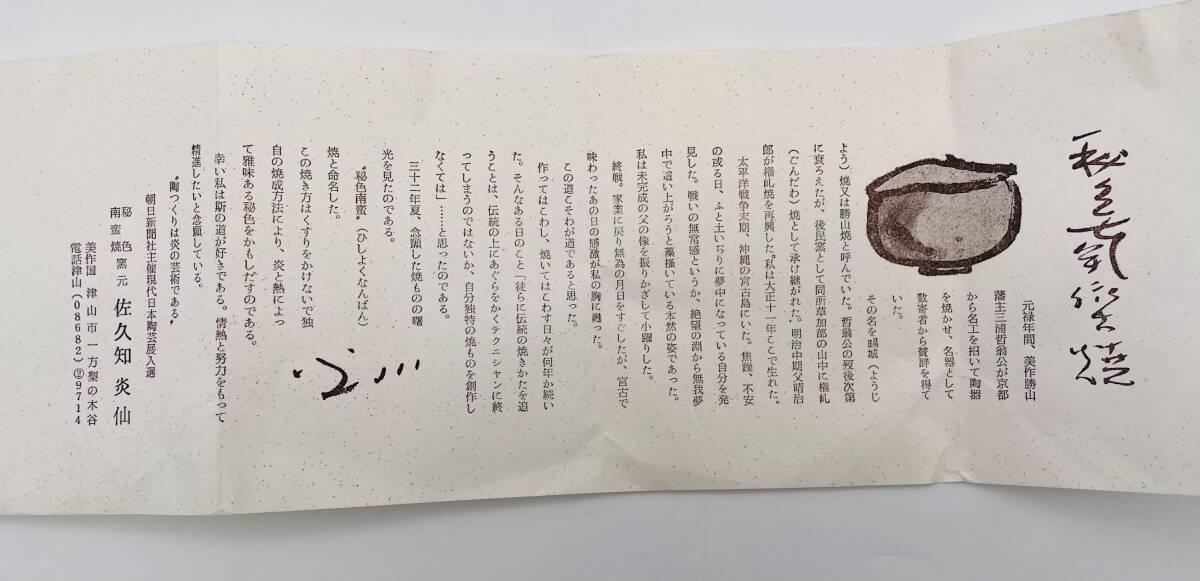 秘色南蛮焼
元禄年間、美作勝山
藩主三浦哲翁公が京都
から名工を招いて陶器
を焼かせ、名器として
数寄者から賛辞を得て
いた。
その名を鳴城(ようじ
よう)焼又は勝山焼と呼んでいた。哲翁公の歿後次第
に衰ろえたが、後民窯として同所草加部の山中に権乢
(ごんだわ)焼として承け継がれた。明治中期父晴治
郎が権乢焼を再興した。私は大正十一年ここで生れた。
太平洋戦争末期、沖縄の宮古島にいた。焦躁、不安
の或る日、ふと土いぢりに夢中になっている自分を発
見した。戦いの無常感というか、絶望の淵から無我夢
中で這い上がろうと藻搔いている本然の姿であった。
私は未完成の父の像を振りかざして小躍りした。
終戦。家業に戻り無為の月日をすごしたが、宮古で
味わったあの日の感激が私の胸に甦った。
この道こそわが道であると思った。
作ってはこわし、焼いてはこわす日々が何年か続い
た。そんなある日のこと「徒らに伝統の焼きかたを追
うことは、伝統の上にあぐらをかくテクニシャンに終
ってしまうのではないか、自分独特の焼ものを創作し
なくては」……と思ったのである。
三十二年夏、念願した焼ものの曙
光を見たのである。
〝秘色南蛮〟(ひしよくなんばん)
焼と命名した。
この焼き方はくすりをかけないで独
自の焼成方法により、炎と熱によっ
て雅味ある秘色をかもしだすのである。
幸い私は斯の道が好きである。情熱と努力をもって
精進したいと念願している。
〝陶つくりは炎の芸術である〟
朝日新聞社主催現代日本陶芸展入選
秘色
南蛮焼 窯元 佐久知炎仙
美作国 津山市一方梨の木谷
電話津山(08682)②9714